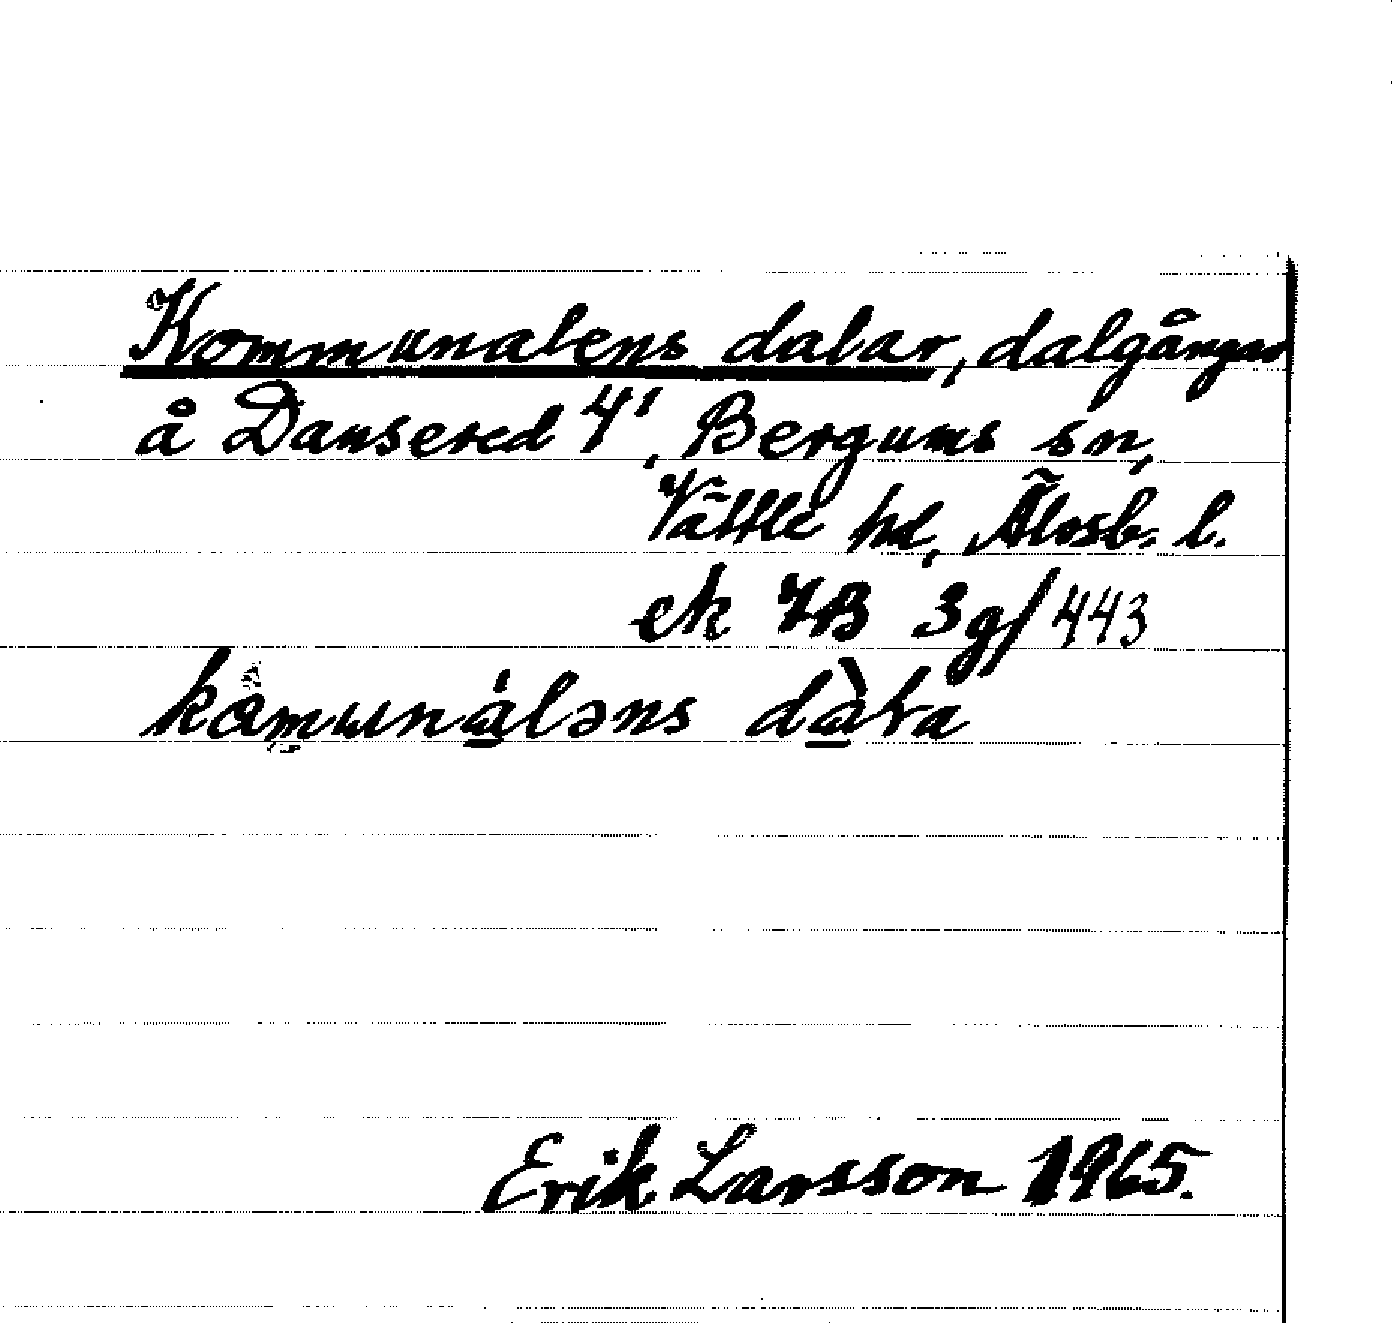 Kommunalens dalar, dalgångar
å Dansered 4¹, Bergums sn,
Vättle hd, Älvsb. l.
ek 7B 3g/443
kåmunáləns dàɫa
Erik Larsson 1965.